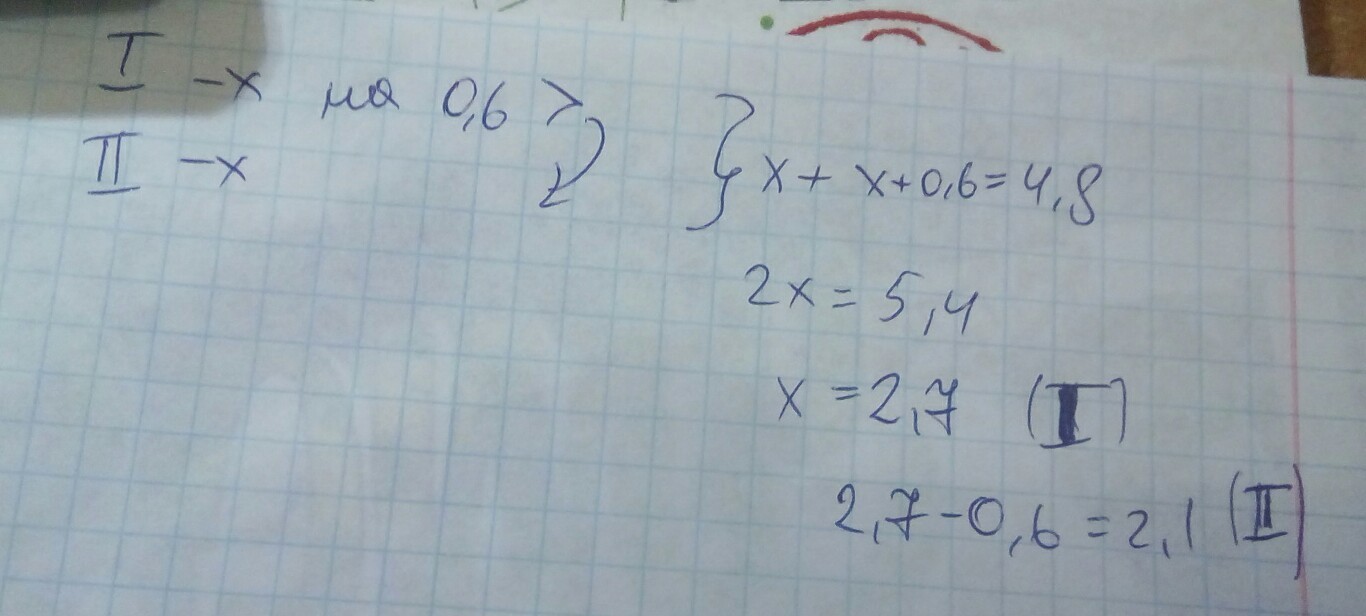 I - x на 0,6 >
II - x
} x + x + 0,6 = 4,8
2x = 5,4
x = 2,7 (I)
2,7 - 0,6 = 2,1 (II)